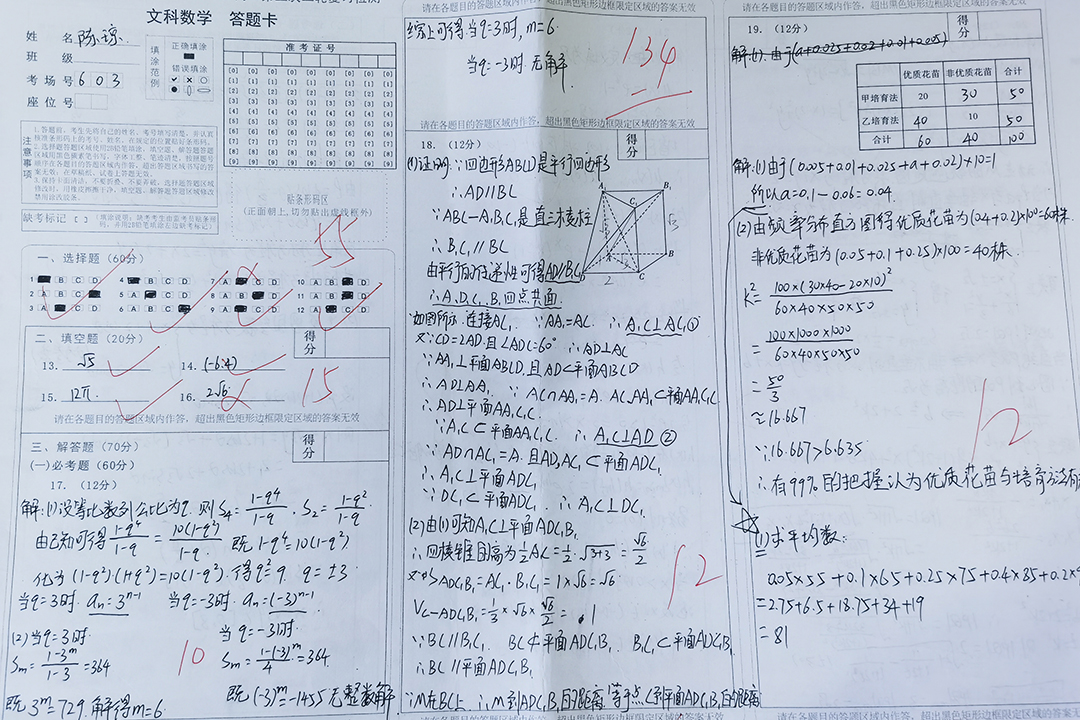 文科数学 答题卡
姓 名 陈琼
班 级
考场号 603
座位号
填涂范例
正确填涂
错误填涂
准考证号
注意事项
贴条形码区
(正面朝上,切勿贴出虚线框外)
缺考标记
55
一、选择题(60分)
1 B C D
4 B C D
7 A C D
10 A C D
2 A B C
5 A C D
8 A B D
11 A C D
3 A B D
6 A B C
9 A C D
12 A C D
二、填空题(20分)
得分
13. √5
14. (-6.4)
15. 12π.
16. 2√6
15
请在各题目的答题区域内作答,超出黑色矩形边框限定区域的答案无效
三、解答题(70分)
得分
(一)必考题(60分)
17. (12分)
解:(1)设等比数列公比为q. 则 S₄=(1-q⁴)/(1-q). S₂=(1-q²)/(1-q)
由已知可得 (1-q⁴)/(1-q) = 10(1-q²)/(1-q). 既 1-q⁴=10(1-q²).
化为 (1-q²)·(1+q²)=10(1-q²). 得q²=9. q=±3
当q=3时. aₙ=3ⁿ⁻¹ 当q=-3时. aₙ=(-3)ⁿ⁻¹
(2)当q=3时. 当q=-3时.
Sₘ=(1-3ᵐ)/(1-3)=364 Sₘ=(1-(-3)ᵐ)/4=364
10
既 3ᵐ=729. 解得m=6. 既 (-3)ᵐ=-1455 无整数解
综上可得.当q=3时, m=6.
当q=-3时. 无解.
134
请在各题目的答题区域内作答,超出黑色矩形边框限定区域的答案无效
18. (12分)
得分
(1)证明:∵四边形ABCD是平行四边形
∴AD∥BC
∵ABC-A₁B₁C₁是直三棱柱
∴B₁C₁∥BC
由平行的传递性可得AD∥B₁C₁
∴A.D.C₁.B₁四点共面.
如图所示.连接AC₁. ∵AA₁=AC. ∴A₁C⊥AC₁①
又∵CD=2AD.且∠ADC=60° ∴AD⊥AC
∵AA₁⊥平面ABCD.且AD⊂平面ABCD
∴AD⊥AA₁. ∵AC∩AA₁=A. AC.AA₁⊂平面AA₁C₁C.
∴AD⊥平面AA₁C₁C.
∵A₁C⊂平面AA₁C₁C. ∴A₁C⊥AD ②
∵AD∩AC₁=A.且AD,AC₁⊂平面ADC₁
∴A₁C⊥平面ADC₁
∵DC₁⊂平面ADC₁. ∴A₁C⊥DC₁.
(2)由(1)可知A₁C⊥平面ADC₁B₁
∴四棱锥的高为½A₁C=½·√(3+3)=√6/2
又∵S ADC₁B₁=AC₁·B₁C₁=1×√6=√6
V C-ADC₁B₁=⅓×√6×√6/2=1
12
∵BC∥B₁C₁. BC⊄平面ADC₁B₁. B₁C₁⊂平面ADC₁B₁
∴BC∥平面ADC₁B₁
∵M在BC上. ∴M到ADC₁B₁的距离.等于点C到平面ADC₁B₁的距离
请在各题目的答题区域内作答,超出黑色矩形边框限定区域的答案无效
19. (12分)
得分
解:(1).由于(a+0.025+0.02+0.01+0.005)
优质花苗 非优质花苗 合计
甲培育法 20 30 50
乙培育法 40 10 50
合计 60 40 100
解:(1)由于(0.005+0.01+0.025+a+0.02)×10=1
所以a=0.1-0.06=0.04.
(2)由频率分布直方图得优质花苗为(0.4+0.2)×100=60株.
非优质花苗为(0.05+0.1+0.25)×100=40株.
K²=100×(30×40-20×10)²/(60×40×50×50)
=100×1000×1000/(60×40×50×50)
=50/3
≈16.667
12
∵16.667>6.635
∴有99%的把握认为优质花苗与培育方法有
(1)求平均数:
0.05×55+0.1×65+0.25×75+0.4×85+0.2×9
=2.75+6.5+18.75+34+19
=81